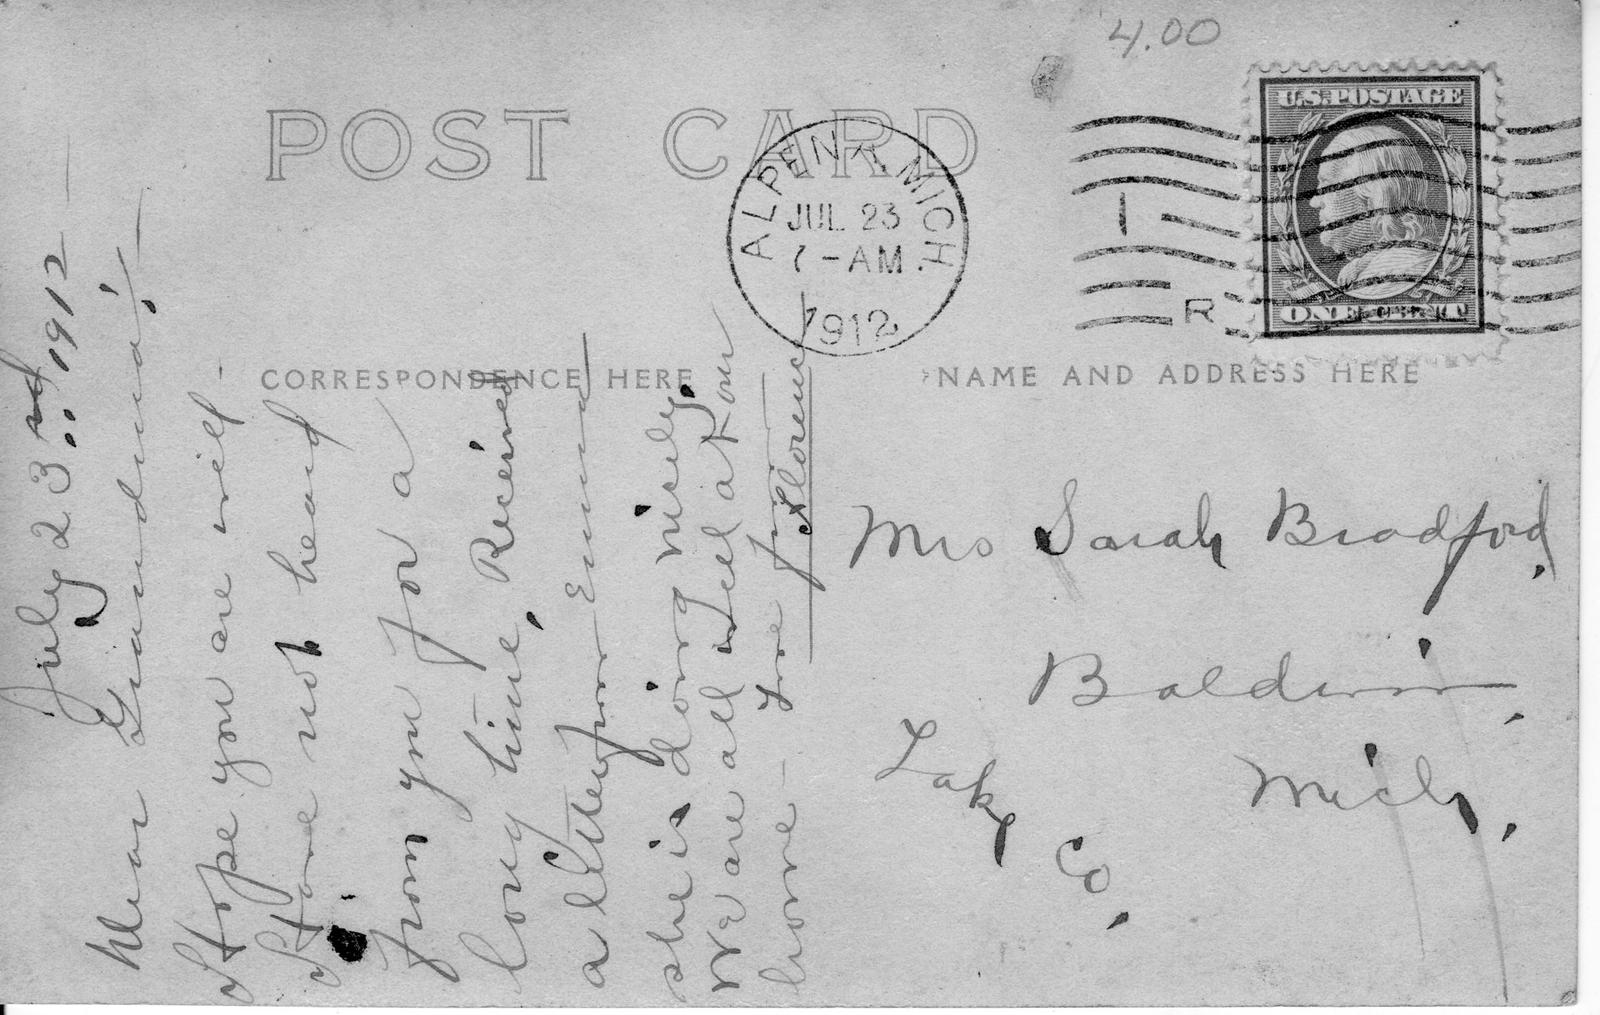 4.00
U.S. POSTAGE
POST CARD
ALPENA, MICH.
JUL 23
7-AM
1912
1
R
ONE CENT
CORRESPONDENCE HERE
NAME AND ADDRESS HERE
July 23rd 1912
Dear Grandma,
Hope you are well
Have not heard
from you for a
long time, Received
a letter from Emma
she is doing nicely.
We are all well at our
home
Florence
Mrs Sarah Bradford,
Baldwin,
Lake Co,
Mich,